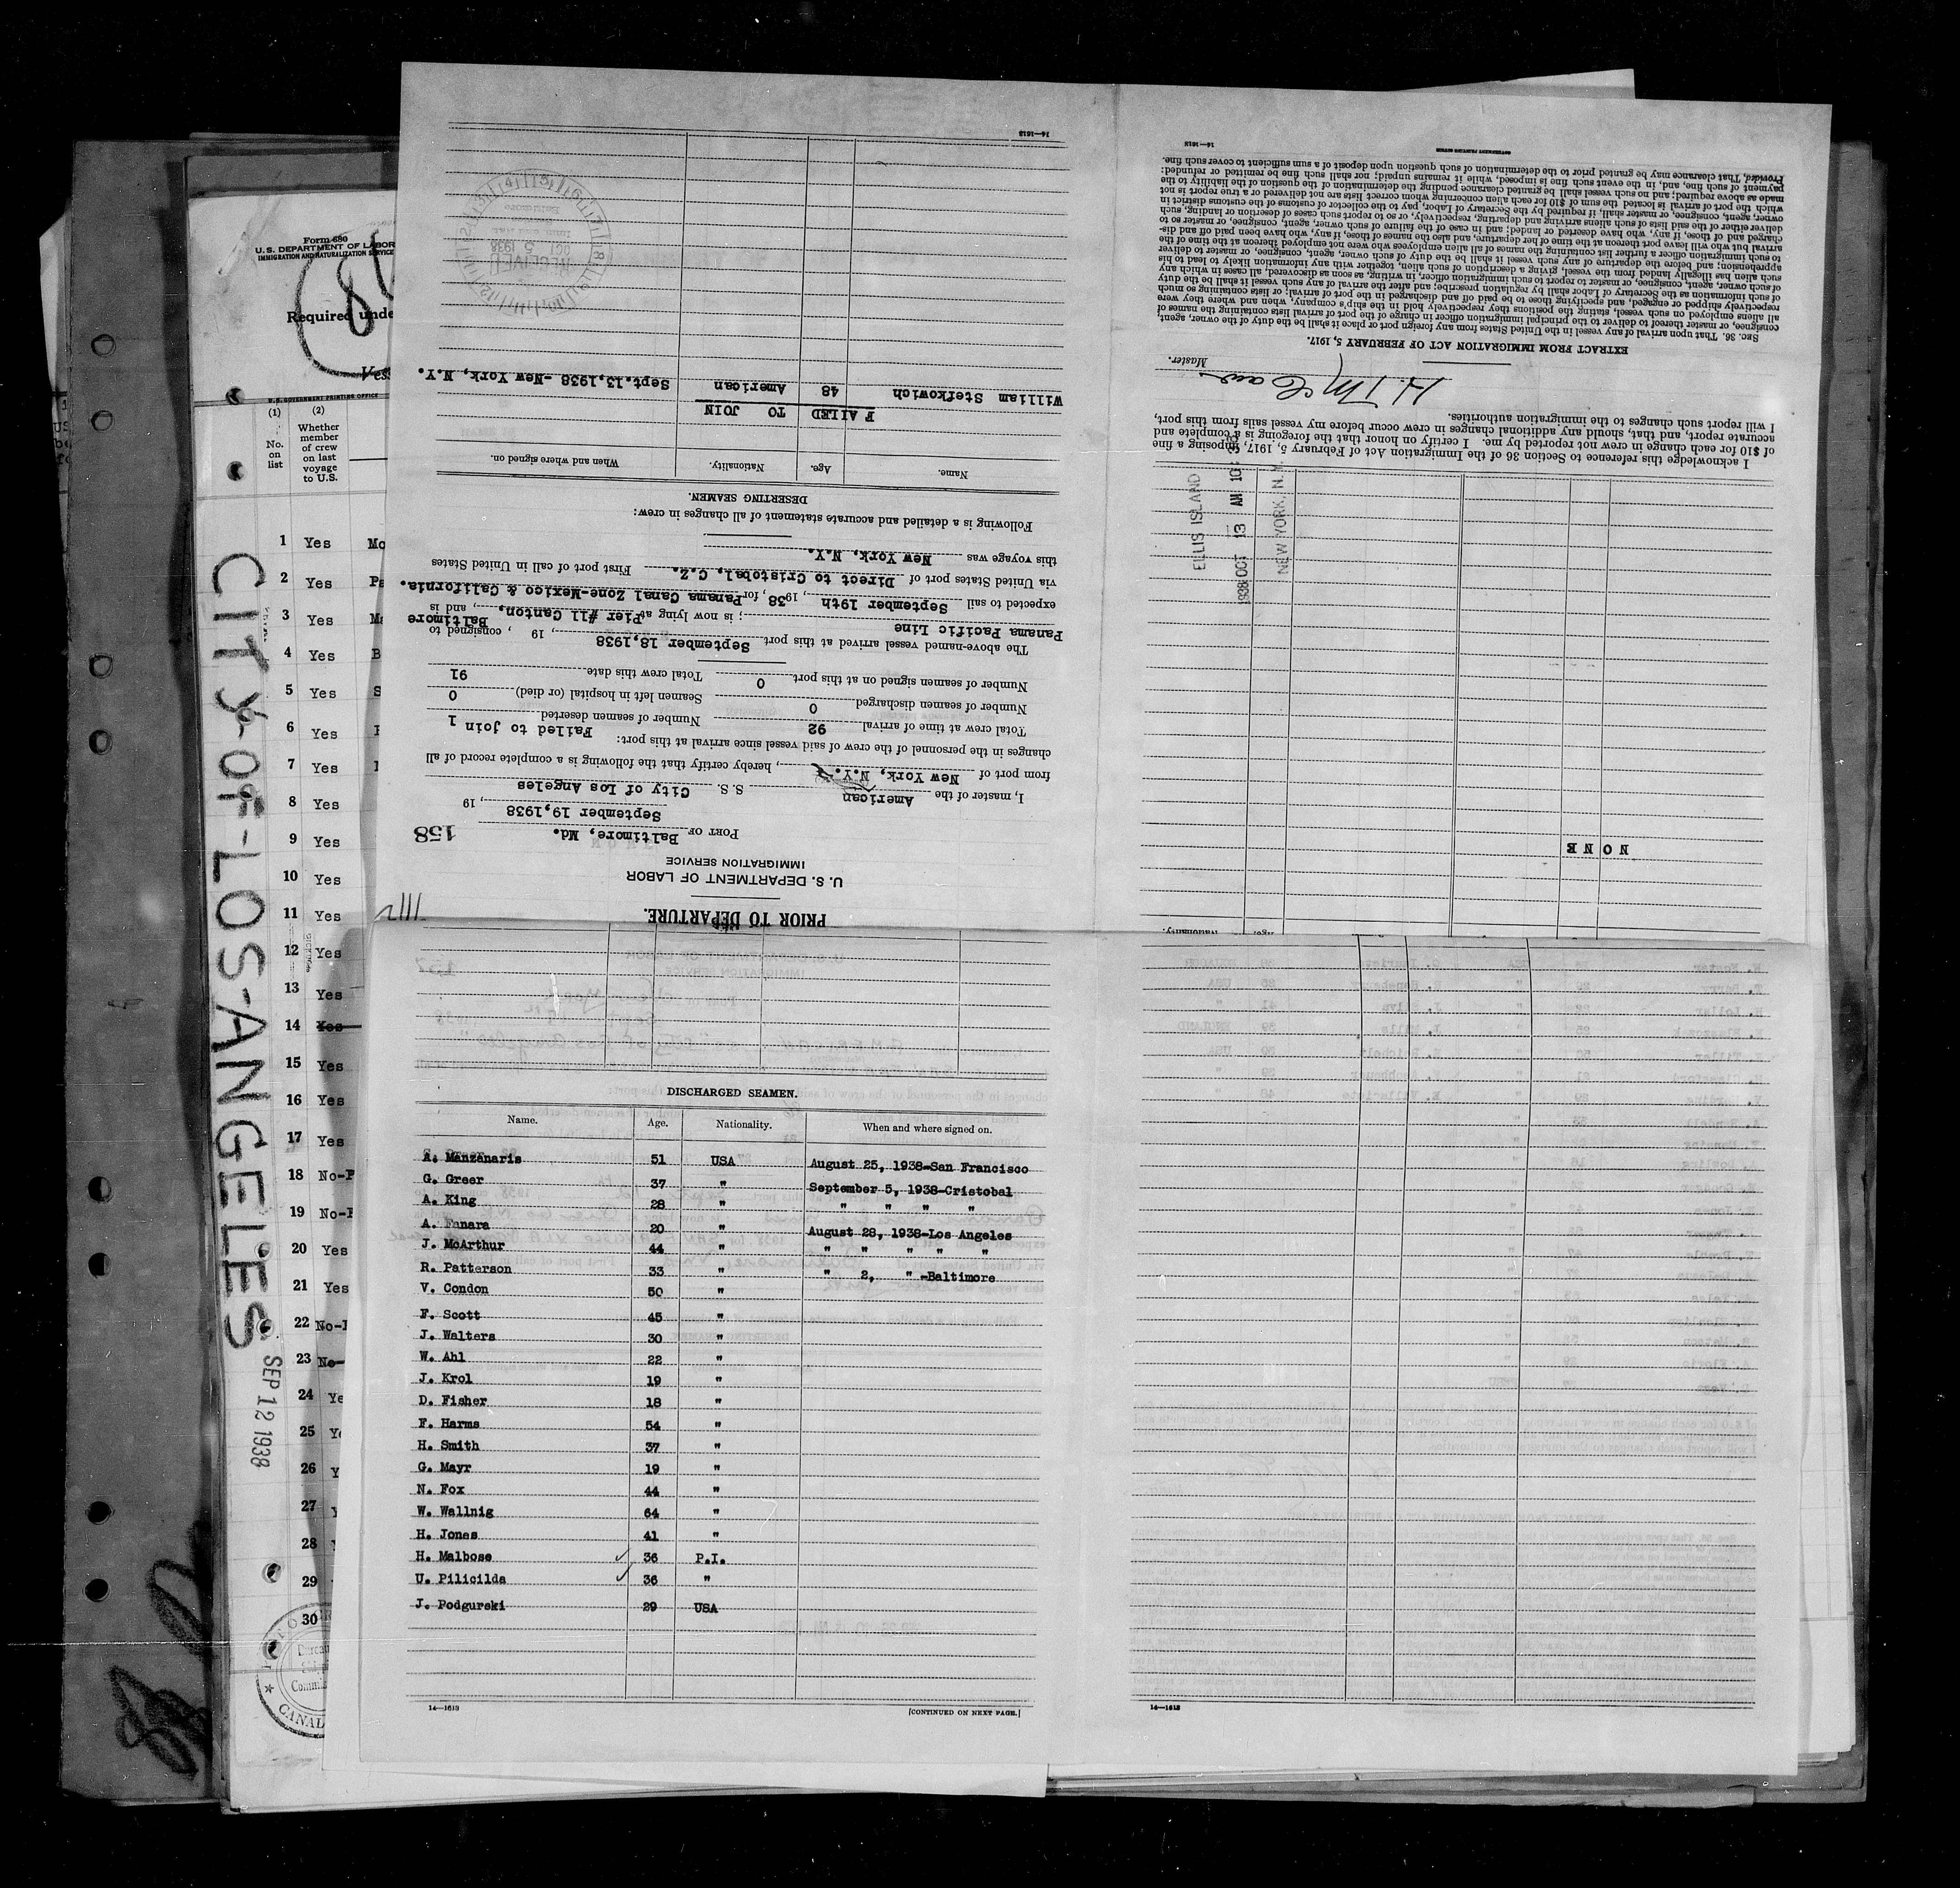 Form 680
U. S. DEPARTMENT OF LABOR
IMMIGRATION AND NATURALIZATION SERVICE
Required unde
Vess
U. S. GOVERNMENT PRINTING OFFICE
(1) (2)
No. on list
Whether member of crew on last voyage to U.S.
1 Yes Mo
2 Yes Pa
3 Yes Ma
4 Yes B
5 Yes S
6 Yes
7 Yes
8 Yes
9 Yes
10 Yes
11 Yes
12 Yes
13 Yes
14 Yes
15 Yes
16 Yes
17 Yes
18 No-P
19 No-P
20 Yes
21 Yes
22 No-
23 No-
24 Ye
25 Ye
26 Y
27
28
29
30
CITY-OF-LOS-ANGELES
SEP 12 1938
PRIOR TO DEPARTURE.
U. S. DEPARTMENT OF LABOR
IMMIGRATION SERVICE
158
PORT OF Baltimore, Md.
September 19, 1938, 19
I, master of the American S. S. City of Los Angeles
from port of New York, N.Y., hereby certify that the following is a complete record of all
changes in the personnel of the crew of said vessel since arrival at this port:
Total crew at time of arrival 92 Number of seamen deserted Failed to join 1
Number of seamen discharged 0 Seamen left in hospital (or died) 0
Number of seamen signed on at this port 0 Total crew this date 91
The above-named vessel arrived at this port September 18,1938, 19 , consigned to
Panama Pacific Line ; is now lying at Pier #11 Canton, Baltimore, and is
expected to sail September 19th, 1938, for Panama Canal Zone-Mexico & California.
via United States port of Direct to Cristobal, C.Z. First port of call in United States
this voyage was New York, N.Y.
Following is a detailed and accurate statement of all changes in crew:
DESERTING SEAMEN.
Name. Age. Nationality. When and where signed on.
FAILED TO JOIN
William Stefkowich 48 American Sept.13,1938 -New York, N.Y.
RECEIVED
OCT 5 1938
14—1613
Age. Nationality.
NONE
ELLIS ISLAND
1938 OCT 13 AM 10
NEW YORK, N.Y.
I acknowledge this reference to Section 36 of the Immigration Act of February 5, 1917, imposing a fine
of $10 for each change in crew not reported by me. I certify on honor that the foregoing is a complete and
accurate report, and that, should any additional changes in crew occur before my vessel sails from this port,
I will report such changes to the immigration authorities.
Master.
EXTRACT FROM IMMIGRATION ACT OF FEBRUARY 5, 1917.
SEC. 36. That upon arrival of any vessel in the United States from any foreign port or place it shall be the duty of the owner, agent,
consignee, or master thereof to deliver to the principal immigration officer in charge of the port of arrival lists containing the names of
all aliens employed on such vessel, stating the positions they respectively hold in the ship's company, when and where they were
respectively shipped or engaged, and specifying those to be paid off and discharged in the port of arrival; or lists containing so much
of such information as the Secretary of Labor shall by regulation prescribe; and after the arrival of any such vessel it shall be the duty
of such owner, agent, consignee, or master to report to such immigration officer, in writing, as soon as discovered, all cases in which any
such alien has illegally landed from the vessel, giving a description of such alien, together with any information likely to lead to his
apprehension; and before the departure of any such vessel it shall be the duty of such owner, agent, consignee, or master to deliver
to such immigration officer a further list containing the names of all alien employees who were not employed thereon at the time of the
arrival but who will leave port thereon at the time of her departure, and also the names of those, if any, who have been paid off and dis-
charged and of those, if any, who have deserted or landed; and in case of the failure of such owner, agent, consignee, or master so to
deliver either of the said lists of such aliens arriving and departing, respectively, or so to report such cases of desertion or landing, such
owner, agent, consignee, or master shall, if required by the Secretary of Labor, pay to the collector of customs of the customs district in
which the port of arrival is located the sum of $10 for each alien concerning whom correct lists are not delivered or a true report is not
made as above required; and no such vessel shall be granted clearance pending the determination of the question of the liability to the
payment of such fine, and, in the event such fine is imposed, while it remains unpaid; nor shall such fine be remitted or refunded:
Provided, That clearance may be granted prior to the determination of such question upon deposit of a sum sufficient to cover such fine.
14—1613
GOVERNMENT PRINTING OFFICE
DISCHARGED SEAMEN.
Name. Age. Nationality. When and where signed on.
A. Manzanaris 51 USA August 25, 1938-San Francisco
G. Greer 37 " September 5, 1938-Cristobal
A. King 28 " " " " "
A. Fanara 20 " August 28, 1938-Los Angeles
J. McArthur 44 " " " " " "
R. Patterson 33 " " 2, " -Baltimore
V. Condon 50 "
F. Scott 45 "
J. Walters 30 "
W. Ahl 22 "
J. Krol 19 "
D. Fisher 18 "
F. Harms 54 "
H. Smith 37 "
G. Mayr 19 "
N. Fox 44 "
W. Wallnig 64 "
H. Jones 41 "
H. Malbose 36 P.I.
U. Pilicilda 36 "
J. Podgurski 29 USA
14—1613
[CONTINUED ON NEXT PAGE.]
14—1613